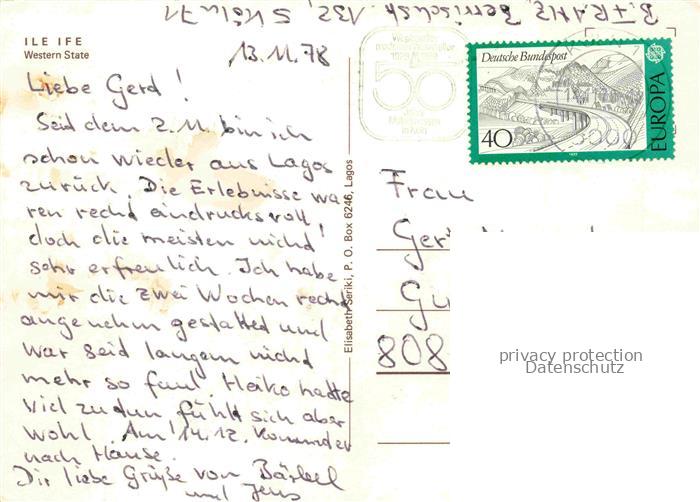 B. TRANZ, Berrischstr. 132, 5 Köln 71
ILE IFE
Western State
13.11.78
Liebe Gerd!
Seid dem 2.11. bin ich
schon wieder aus Lagos
zurück. Die Erlebnisse wa
ren rechd eindrucksvoll!
doch die meisten nichd
sehr erfreulich. Ich habe
mir die zwei Wochen rechd
angenehm gestalted und
war seid langem nichd
mehr so faul. Heiko hadte
viel zu dun fühld sich aber
wohl. Am 14.12. kommd er
nach Hause.
Dir liebe Grüße von Bärbel
und Jens
Elisabeth Seriki, P. O. Box 6246, Lagos
50
Jahre
in Köln
Deutsche Bundespost
40
EUROPA
1977
5000
Frau
Ger
Gu
808
privacy protection
Datenschutz